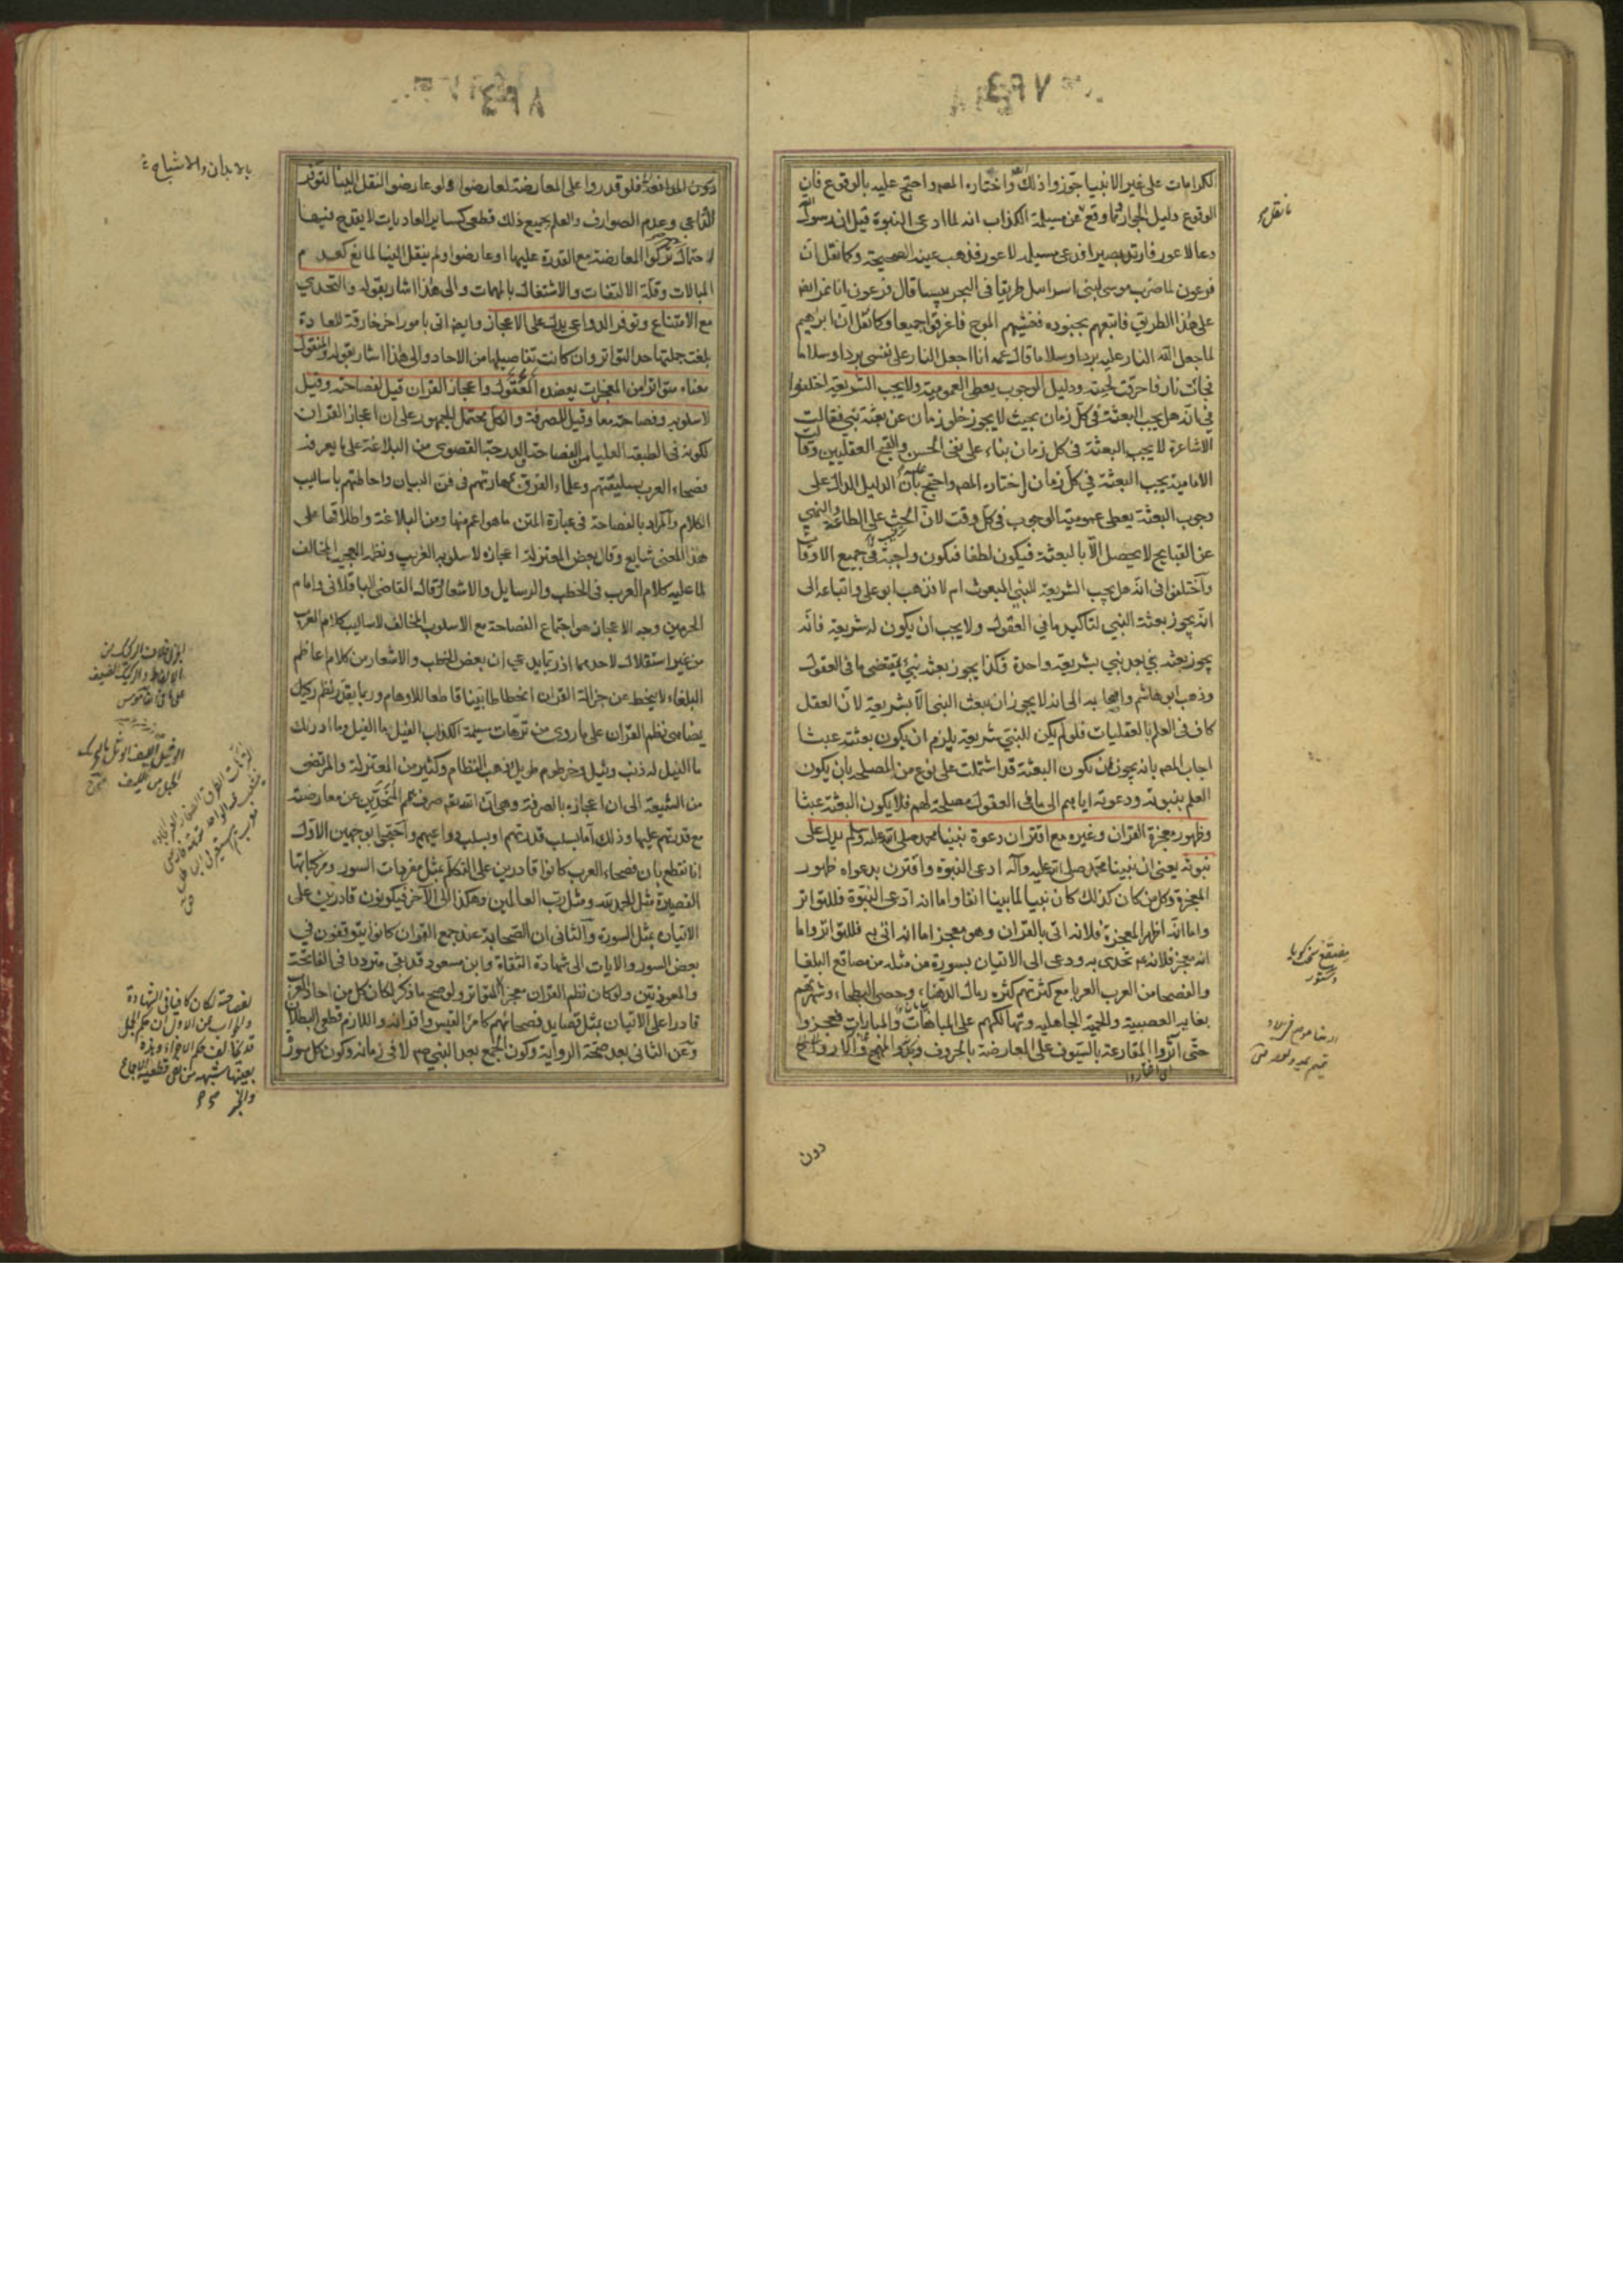 الكرامات على غير الانبيا جوزوا ذلك واختاره المص واحتج عليه بالوقوع فان
الوقوع دليل الجواز وما وقع عن مسيلمة الكذاب انه لما ادعى النبوة قيل ان رسول الله
دعا لاعور فارتد بصيرا فدعى مسيلمه لاعور فذهب عينه الصحيحة وكما نقل ان
فرعون لما ضرب موسى لبنى اسرائيل طريقا فى البحر يبسا قال فرعون انا نمر ايضا
على هذا الطريق فاتبعهم بجنوده فغشيهم الموج فاغرقوا جميعا وكما نقل ان ابرهيم
لما جعل الله النار عليه بردا وسلاما قال عمه انا اجعل النار على نفسى بردا وسلاما
فجائت نار فاحرقت لحيته ودليل الوجوب يعطى العمومية ولا يجب الشريعة اختلفوا
في انه هل يجب البعثة فى كل زمان بحيث لا يجوز خلو زمان عن بعثة نبي فقالت
الاشاعرة لا يجب البعثة فى كل زمان بناء على نفى الحسن والقبح العقليين وقالت
الامامية يجب البعثة في كل زمان واختاره المص واحتج عليه بان الدليل الدال على
وجوب البعثة يعطى عمومية الوجوب فى كل وقت لان الحث على الطاعة والنهي
عن القبايح لا يحصل الا بالبعثة فيكون لطفا فيكون واجبة فى جميع الاوقات
واختلفوا فى انه هل يجب الشريعة للنبي المبعوث ام لا فذهب ابو على واتباعه الى
انه يجوز بعثة النبي لتاكيد ما في العقول ولا يجب ان يكون له شريعة فانه
يجوز بعثه نبي بعد نبي بشريعة واحدة فكذا يجوز بعثه نبي بمقتضى ما فى العقول
وذهب ابو هاشم واصحابه الى انه لا يجوز ان يبعث النبى الا بشريعة لان العقل
كاف فى العلم بالعقليات فلو لم يكن للنبى شريعة يلزم ان يكون بعثته عبثا
اجاب المص بانه يجوز ان يكون البعثة قد اشتملت على نوع من المصلحة بان يكون
العلم بنبوته ودعوته اياهم الى ما فى العقول مصلحة لهم فلا يكون البعثة عبثا
وظهور معجزة القران وغيره مع اقتران دعوة نبينا محمد صلى الله عليه وسلم يدل على
نبوته يعنى ان نبينا محمد صلى الله عليه وآله ادعى النبوة واقترن بدعواه ظهور
المعجزة وكل من كان كذلك كان نبيا لما بينا انفا واما انه ادعى النبوة فللتواتر
واما انه اظهر المعجزة فلانه اتى بالقران وهو معجز اما انه اتى به فللتواتر واما
انه معجز فلانه عم تحدى به ودعى الى الاتيان بسورة من مثله من مصاقع البلغا
والفصحا من العرب العربا مع كثرتهم كثرة رمال الدهناء وحصى البطحاء وشهرتهم
بغاية العصبية والحمية الجاهلية وتهالكهم على المباهات والمبارات فعجزوا
حتى آثروا المقارعة بالسيوف على المعارضة بالحروف وبذلوا المهج والارواح
اى اختاروا
دون
ما نقل
دون المدافعة فلو قدروا على المعارضة لعارضوا ولو عارضوا لنقل الينا لتوفر
الدواعى وعدم الصوارف والعلم بجميع ذلك قطعى كساير العاديات لا يقدح فيها
احتمال انهم تركوا المعارضة مع القدرة عليها او عارضوا ولم ينقل الينا لمانع كعدم
المبالات وقلة الالتفات والاشتغال بالمهمات والى هذا اشار بقوله والتحدي
مع الامتناع وتوفر الدواعى يدل على الاعجاز وايضا اتى بامور اخر خارقة للعادة
بلغت جملتها حد التواتر وان كانت تفاصيلها من الاحاد والى هذا اشار بقوله والمنقول
معناه متواترا من المعجزات يعضده المعقول واعجاز القران قيل لفصاحته وقيل
لاسلوبه وفصاحته معا وقيل للصرفة والكل محتمل الجمهور على ان اعجاز القران
لكونه فى الطبقة العليا من الفصاحة والدرجة القصوى من البلاغة على ما يعرفه
فصحاء العرب بسليقتهم وعلماء الفرق بمهارتهم فى فن البيان واحاطتهم باساليب
الكلام والمراد بالفصاحة فى عبارة المتن ما هو اعم منها ومن البلاغة واطلاقها على
هذا المعنى شايع وقال بعض المعتزلة اعجازه لاسلوبه الغريب ونظمه العجيب المخالف
لما عليه كلام العرب فى الخطب والرسايل والاشعار وقال القاضى الباقلانى وامام
الحرمين وجه الاعجاز هو اجتماع الفصاحة مع الاسلوب المخالف لاساليب كلام العرب
من غير استقلال لاحدهما اذ ربما يدعى ان بعض الخطب والاشعار من كلام اعاظم
البلغاء لا ينحط عن جزالة القران انحطاطا بينا قاطعا للاوهام وربما يقدر نظم ركيك
يضاهى نظم القران على ما روى من ترهات مسيلمة الكذاب الفيل ما الفيل وما ادريك
ما الفيل له ذنب وثيل وخرطوم طويل وذهب النظام وكثير من المعتزلة والمرتضى
من الشيعة الى ان اعجازه بالصرفة وهى ان الله تعم صرف همم المتحدين عن معارضته
مع قدرتهم عليها وذلك اما بسلب قدرتهم او بسلب دواعيهم واحتجوا بوجهين الاول
انا نقطع بان فصحاء العرب كانوا قادرين على التكلم بمثل مفردات السور ومركباتها
القصيرة مثل الحمد لله ومثل رب العالمين وهكذا الى الآخر فيكونون قادرين على
الاتيان بمثل السورة والثانى ان الصحابة عند جمع القران كانوا يتوقفون في
بعض السور والايات الى شهادة الثقاة وابن مسعود قد بقى مترددا فى الفاتحة
والمعوذتين ولو كان نظم القران معجزا للتواتر ولو صح ما ذكر لكان كل من احاد العرب
قادرا على الاتيان بمثل قصايد فصحائهم كامرء القيس واقرانه واللازم قطعى البطلان
وعن الثانى بعد صحة الرواية وكون الجمع بعد النبي صم لا فى زمانه وكون كل سورة
بالابدان والاشباح